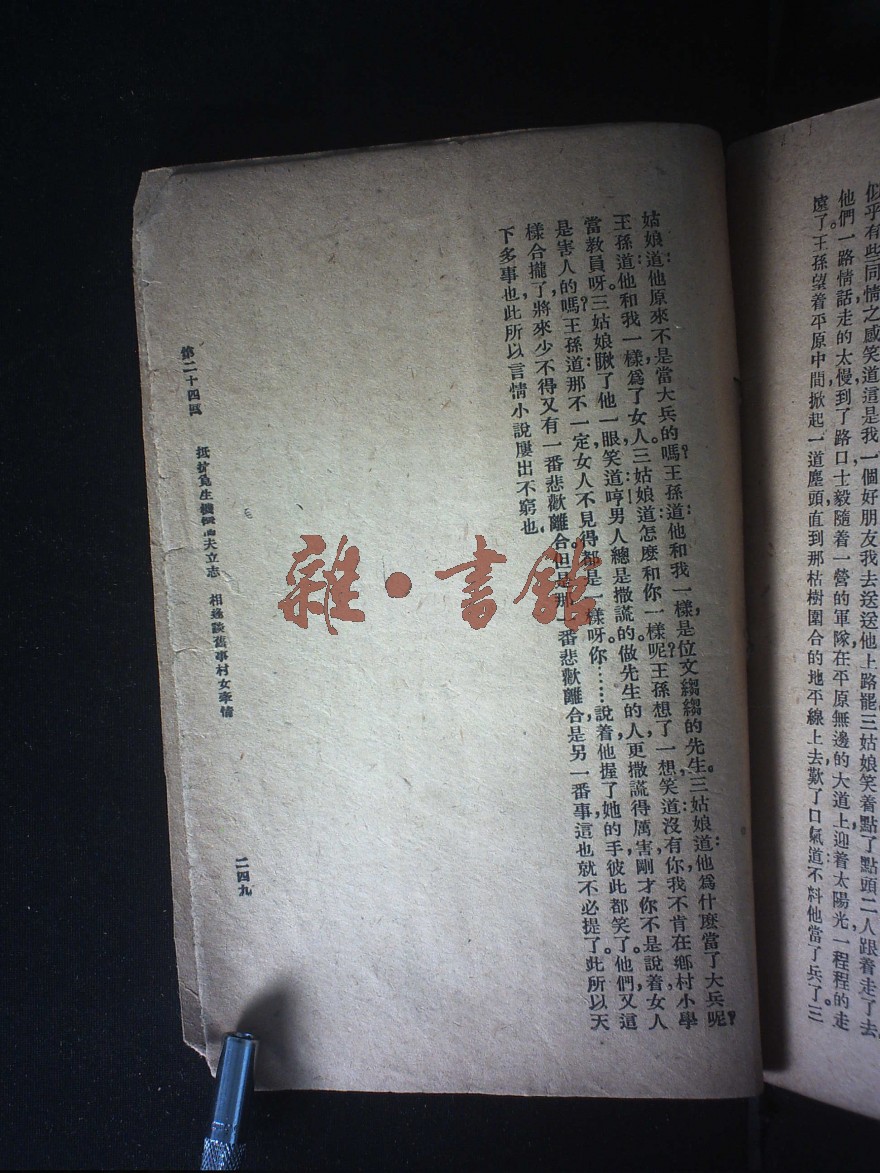 似乎有些同情之感，笑道：這是我一個好朋友，我去送送他上路罷。三姑娘笑着點了點頭，二人跟着走了去。
他們一路情話，走的太慢，到了路口，士毅隨着一營的軍隊，在平原無邊的大道上，迎着太陽光，一程程的走
遠了。王孫望着平原中間，掀起一道塵頭，直到那枯樹圍合的地平線上去，歎了口氣道：不料他當了兵了。三
姑娘道：他原來不是當大兵的嗎？王孫道：他和我一樣，是位文縐縐的先生。三姑娘道：他爲什麽當了大兵呢？
王孫道：他和我一樣，爲了女人。三姑娘道：怎麽和你一樣呢？王孫想了一想，笑道：沒有你，我不肯在鄉村小學
當教員呀。三姑娘瞅了他一眼，笑道：哼！男人總是撒謊的，做先生的人，更撒謊得厲害，剛才你不是說着女人
是害人的嗎？王孫道：那不一定，女人不見得都是一樣呀。你……說着，他握了她的手，彼此都笑了。他們又這
樣合攏了，將來少不得又有一番悲歡離合。但是那一番悲歡離合，是另一番事，這也就不必提了。此所以天
下多事也，此所以言情小說屢出不窮也。
第二十四回　抵抗見生機　夫立志　相逢談舊事村女牽情
二四九
雜・書館